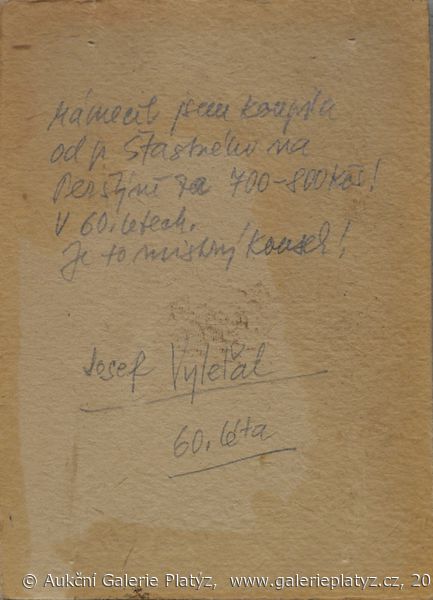 Rámeček jsem koupila
od p. Šťastného na
Perštýně za 700-800 Kčs!
V 60. letech.
Je to mistrný kousek!
Josef Vyleťal
60. léta
© Aukční Galerie Platýz, www.galerieplatyz.cz, 20